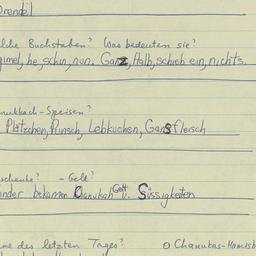 Drendel
lche Buchstaben? Was bedeuten sie?
gimel, he, schin, nun. Ganz, Halb, schieb ein, nichts.
nukkah-Speisen?
Plätzchen, Punsch, Lebkuchen, Gansfleisch
schenke? - Geld?
inder bekamen Chanukah Gelt u. Süssigkeiten
me des letzten Tages?